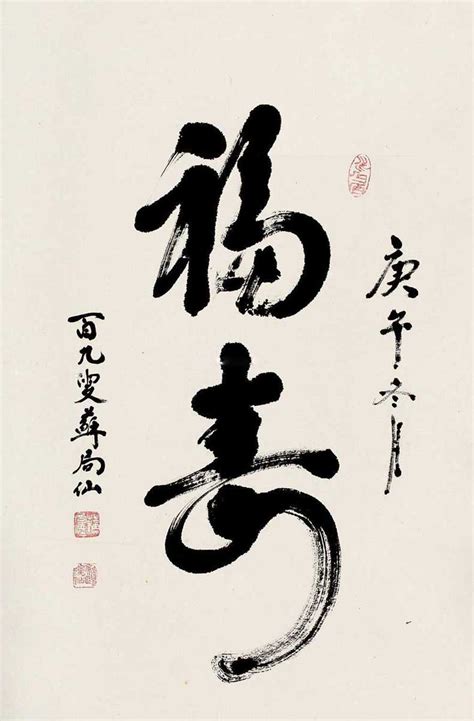 庚午冬月
福寿
百九叟蘇局仙